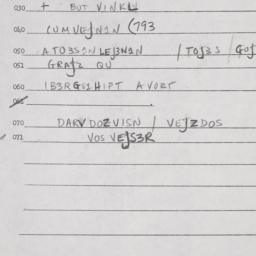 030 + BUT VINKL
040 CUMVEJN1N (793
050 ATO3S1NLEJ3N1N / TOJ3S / GOJ
051 GRAJ2 QU
060 IB3RGG1HIPT AVORT
070 DARVDOZVISN / VEJZDOS
071 VOS VEJS3R